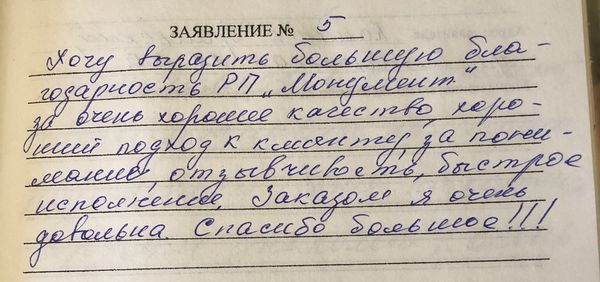 ЗАЯВЛЕНИЕ № 5
Хочу выразить большую бла-
годарность РП „Монумент"
за очень хорошее качество, хоро-
ший подход к клиенту, за пони-
мание, отзывчивость, быстрое
исполнение. Заказом я очень
довольна. Спасибо большое!!!